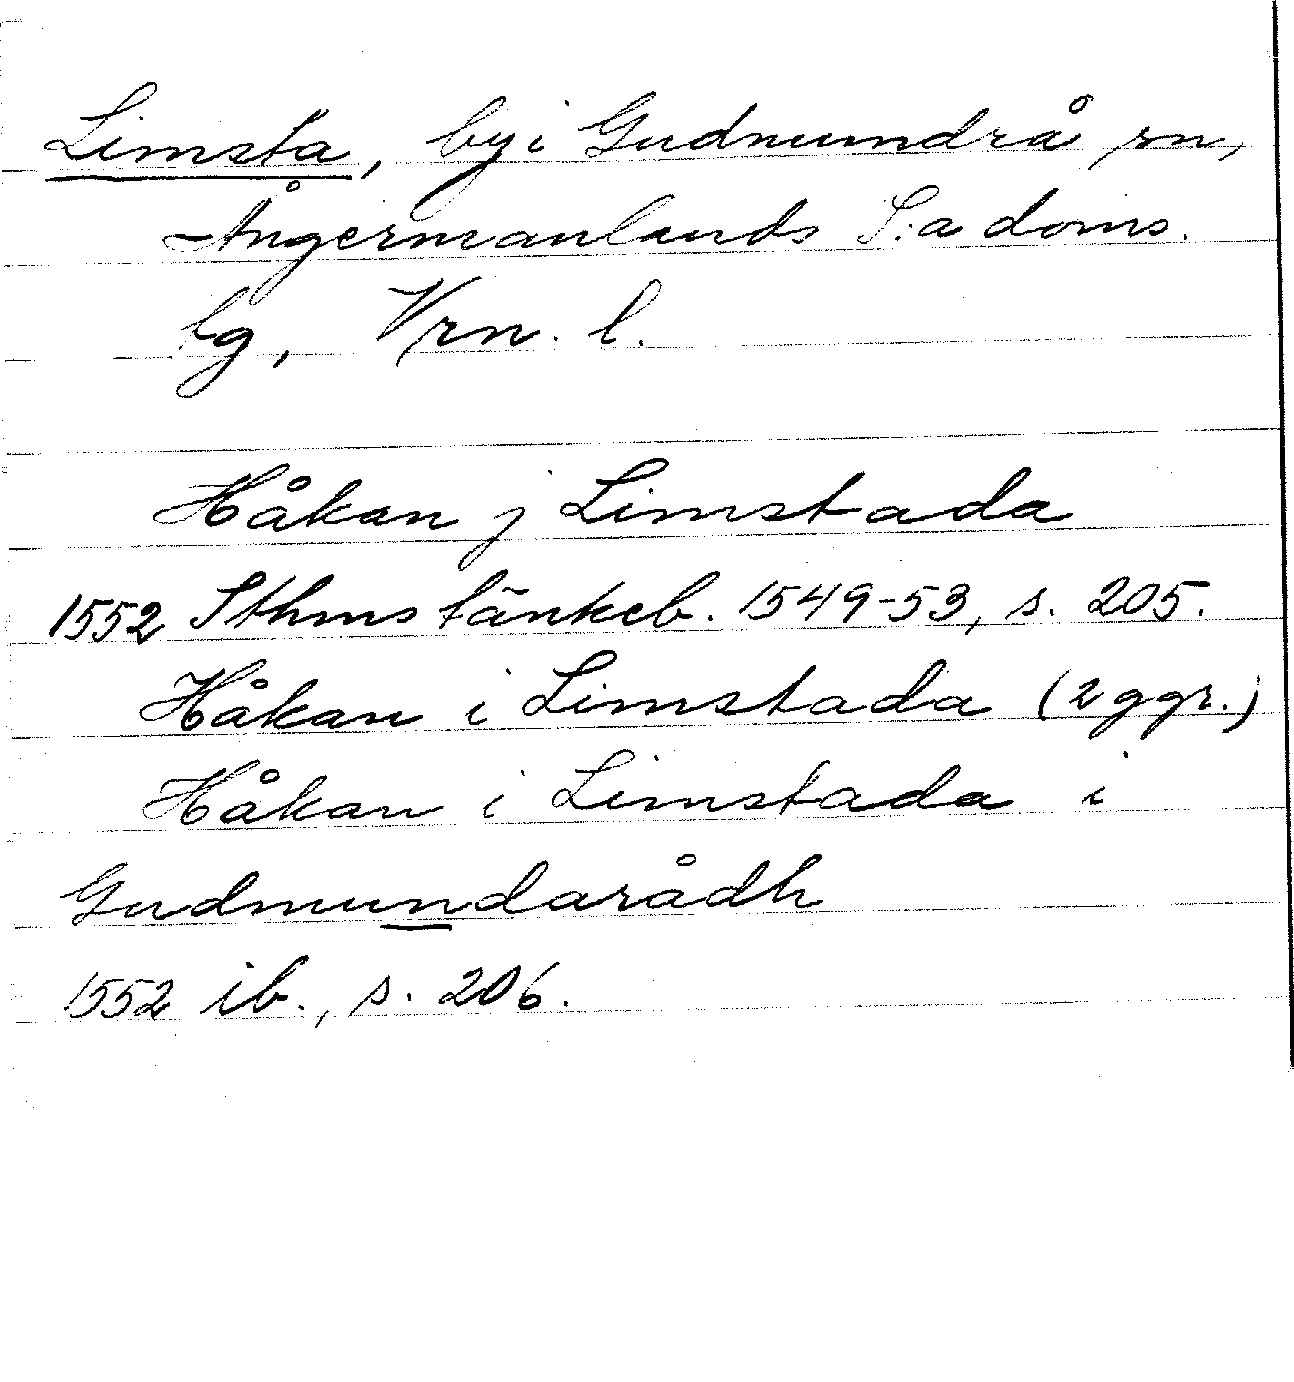 Limsta, by i Gudmundrå sn,
Ångermanlands S:a doms.
lg, Vrn. l.
Håkan j Limstada
1552 Sthms tänkeb. 1549-53, s. 205.
Håkan i Limstada (2 ggr.)
Håkan i Limstada i
Gudmundarådh
1552 ib., s. 206.